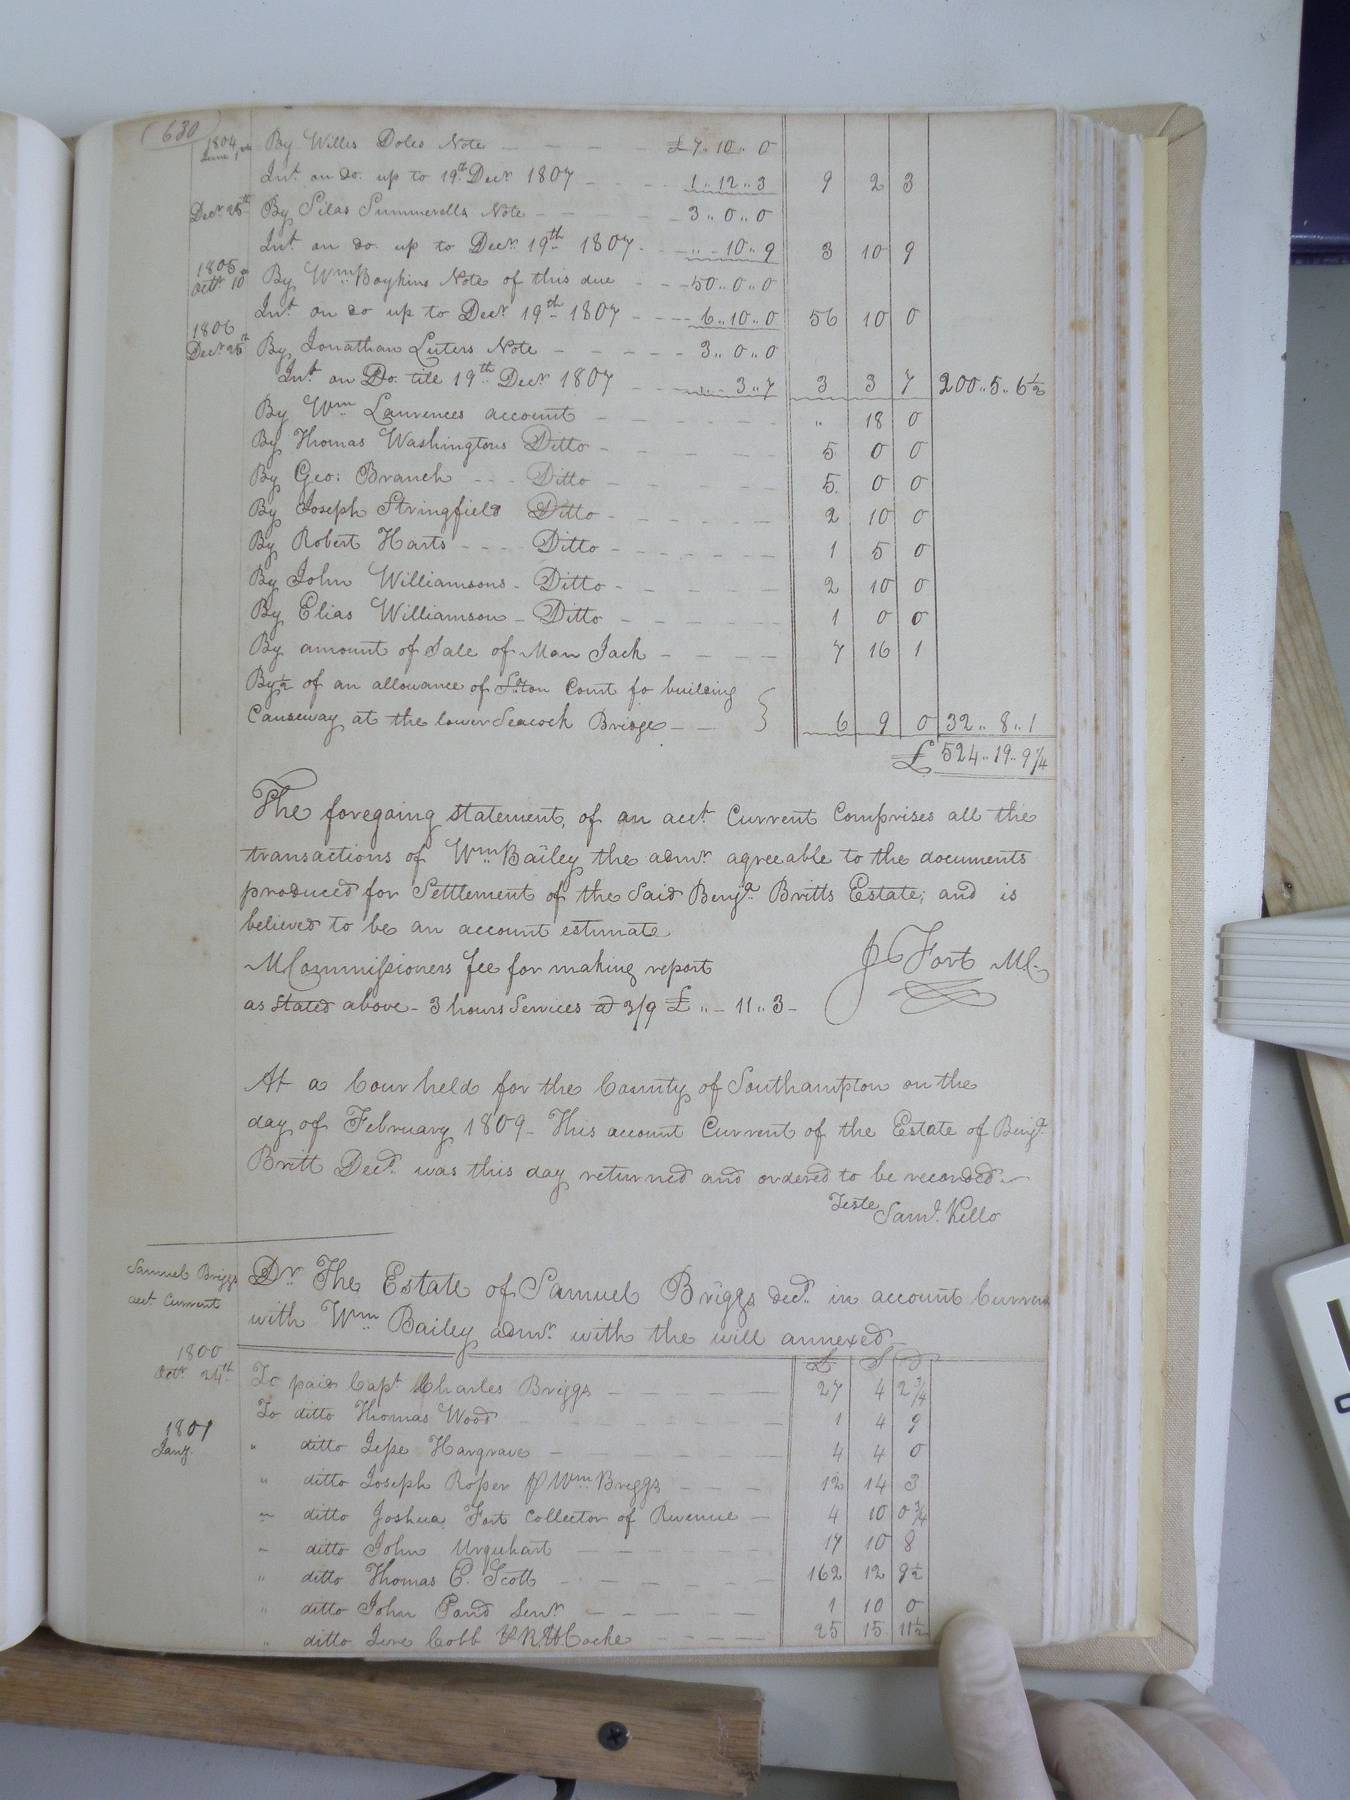 (630)
1804 June 1st By Willis Doles Note £7..10..0
Int. on do. up to 19th Decr 1807 1..12..3 9 2 3
Decr 25th By Silas Summerells Note 3..0..0
Int. on do. up to Decr. 19th 1807 - ..10..9 3 10 9
1805 Octr 10th By Wm Boykins Note of this due 50..0..0
Int. on do up to Decr 19th 1807 6..10..0 56 10 0
1806 Decr 25th By Jonathan Luters Note 3..0..0
Int on Do. till 19th Decr 1807 ..3..7 3 3 7 200..5..6½
By Wm Laurences account " 18 0
By Thomas Washingtons Ditto 5 0 0
By Geo: Branch Ditto 5 0 0
By Joseph Stringfield Ditto 2 10 0
By Robert Harts Ditto 1 5 0
By John Williamsons Ditto 2 10 0
By Elias Williamson Ditto 1 0 0
By amount of Sale of Man Jack 7 16 1
By ½ of an allowance of S.ton Court fo building
Causeway at the lower Seacock Bridge 6 9 0 32..8..1
£ 524..19..9¼
The foregoing statement, of an acct. Current Comprises all the
transactions of Wm Bailey the admr agreeable to the documents
produced for Settlement of the Said Benja. Britts Estate; and is
believed to be an account estimate
J Fort M.C.
M Commissioners fee for making report
as stated above - 3 hours Services @ 3/9 £ " - 11..3 -
At a Cour held for the County of Southampton on the
day of February 1809 - This account Current of the Estate of Benja.
Britt Decd. was this day returned and ordered to be recorded.
Teste Saml. Kello
Samuel Briggs
acct Current
Dr The Estate of Samuel Briggs decd. in account Current
with Wm Bailey admr. with the will annexed
£ S D
1800 Octr 24th To paid Capt Charles Briggs 27 4 2¾
To ditto Thomas Wood 1 4 9
1801 Jany. " ditto Jesse Hargrave 4 4 0
" ditto Joseph Roper & Wm Briggs 12 14 3
" ditto Joshua Fort Collector of Revenue 4 10 0¾
" ditto John Urquhart 17 10 8
" ditto Thomas C. Scott 162 12 9½
" ditto John Pand Senr 1 10 0
" ditto Jere Cobb & Cocke 25 15 11½